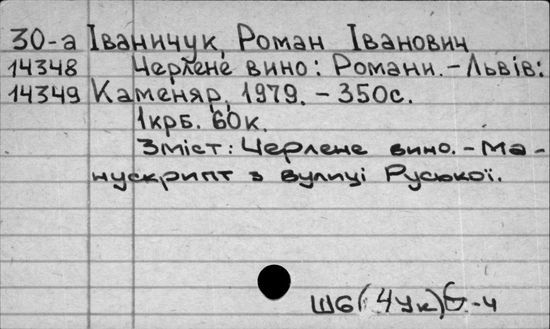 30-а Іваничук, Роман Іванович
14348 Черлене вино: Романи. - Львів:
14349 Каменяр, 1979. - 350с.
1крб. 60к.
Зміст: Черлене вино. - Ма-
нускрипт з вулиці Руської.
Ш6(4Ук)6-4